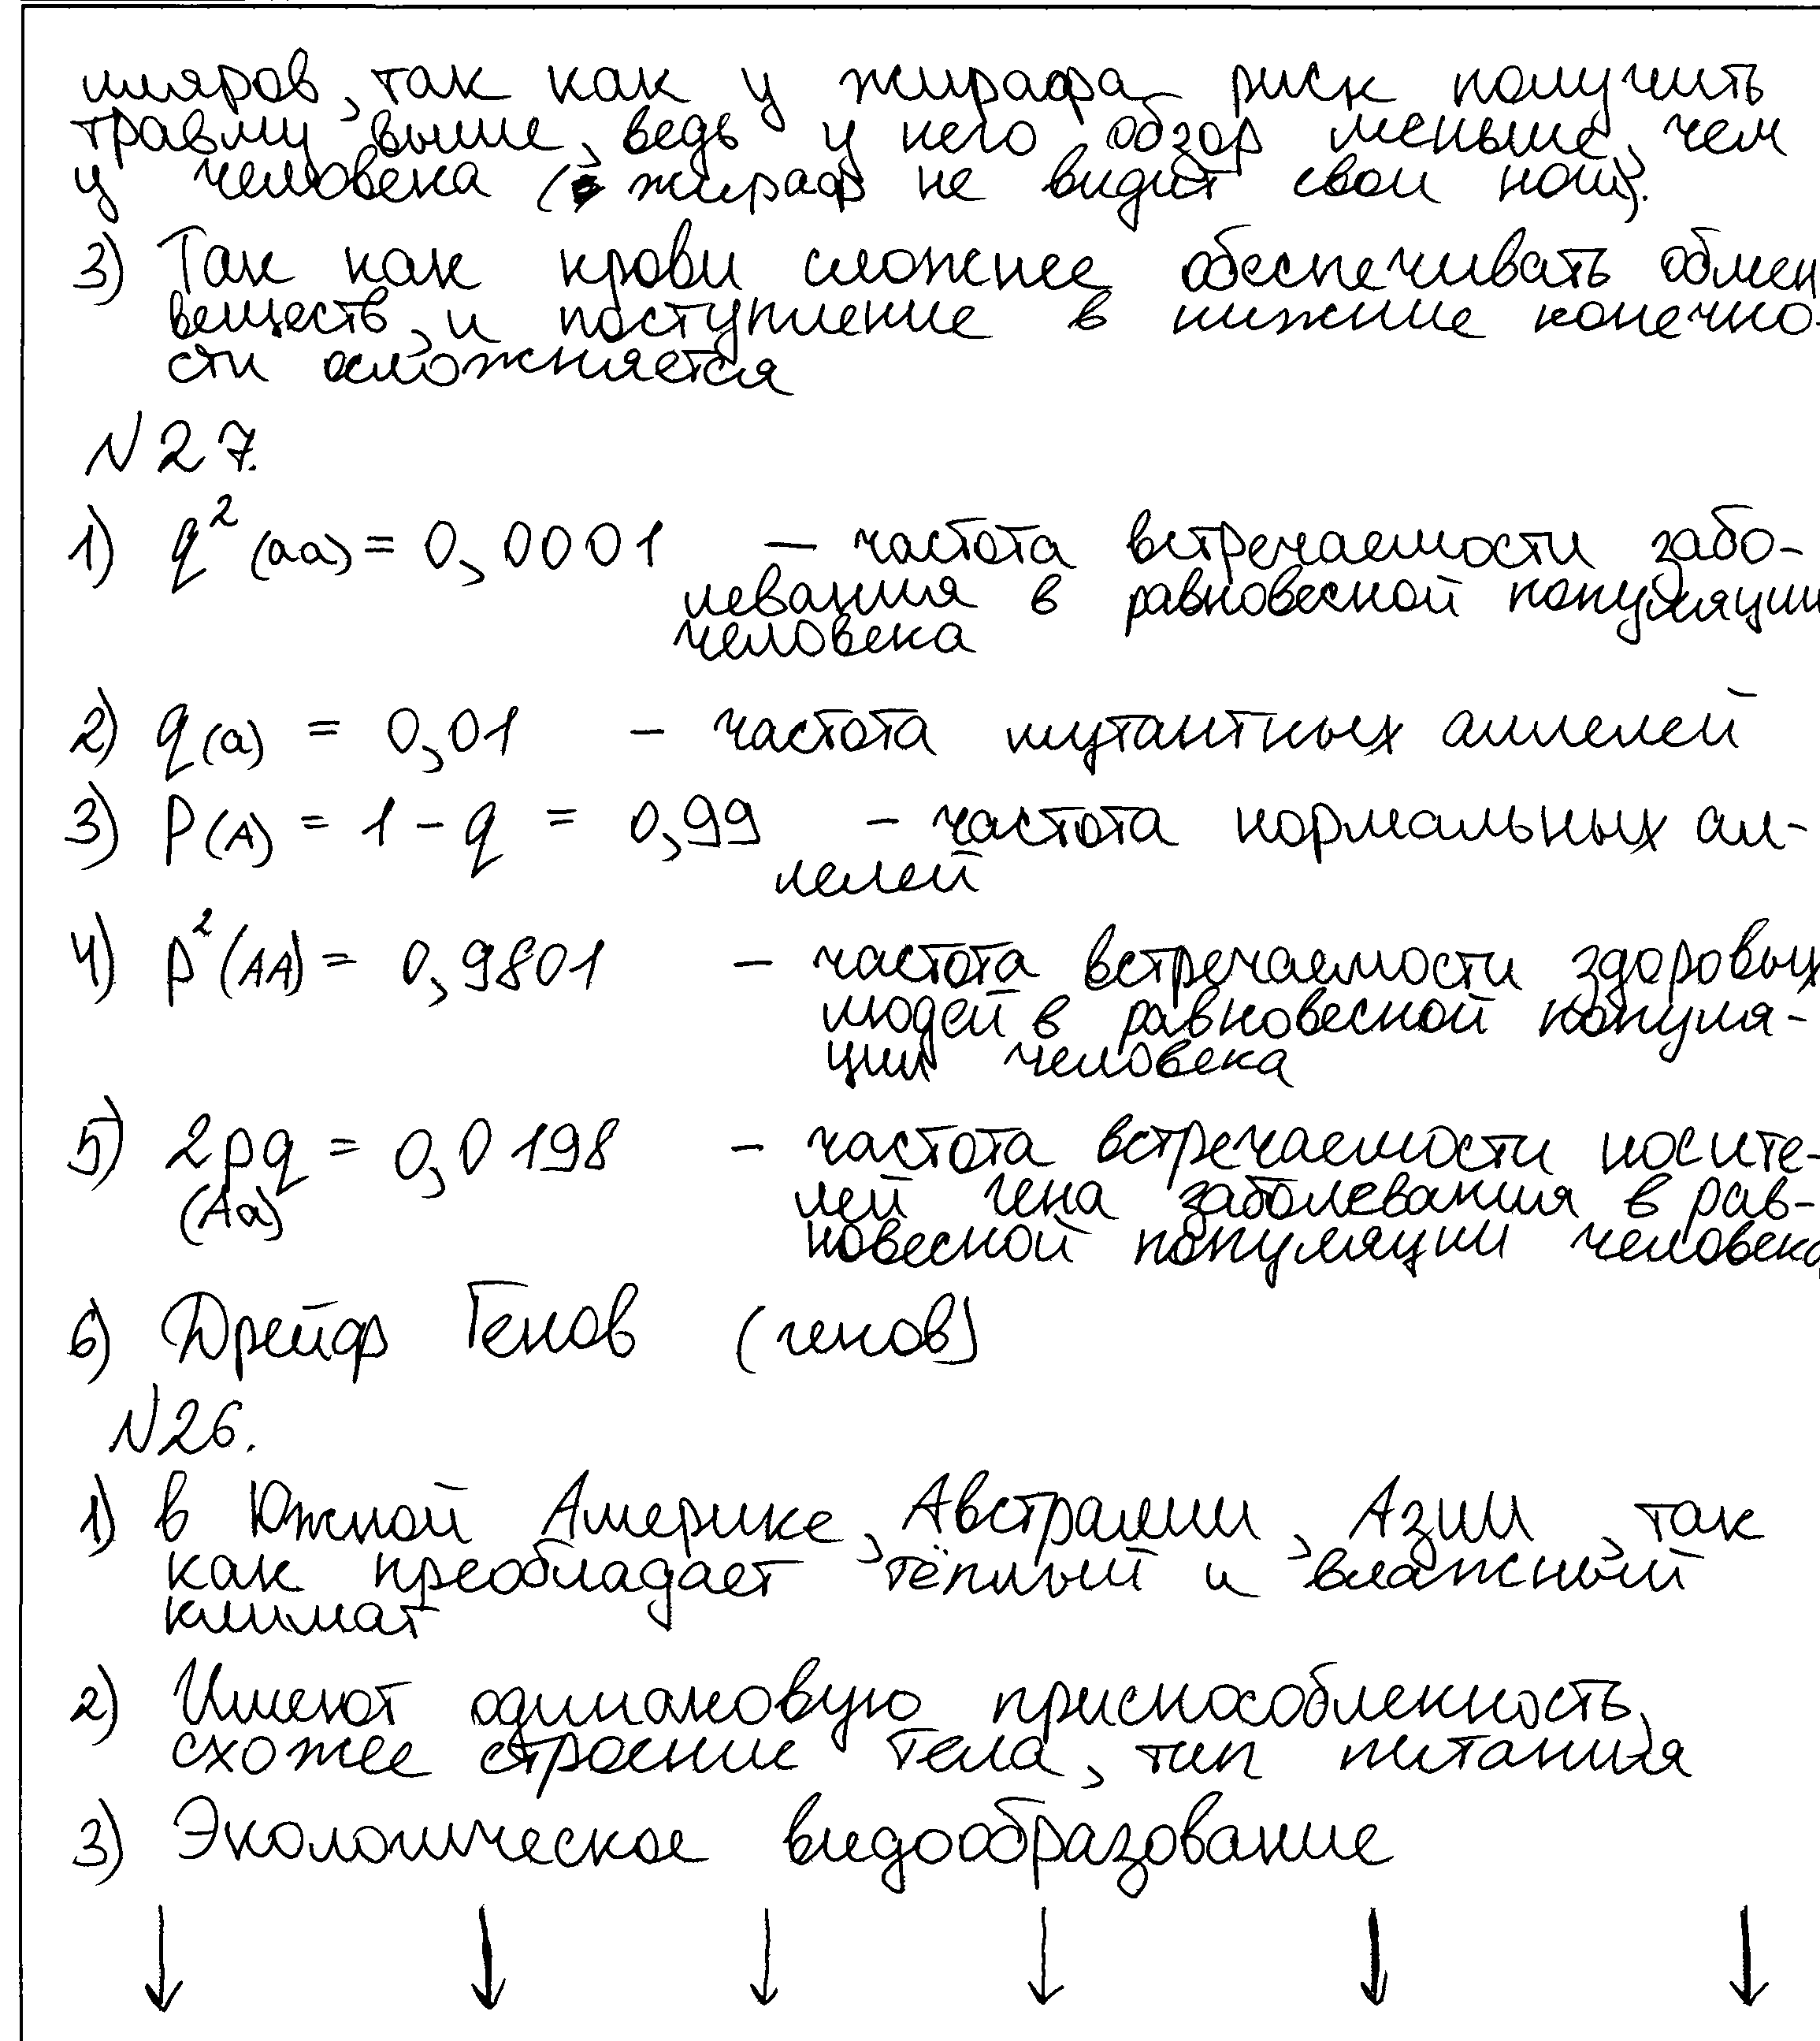 ляров, так как у жирафа риск получить
травму выше, ведь у него обзор меньше, чем
у человека (жираф не видит свои ноги).
3) Так как крови сложнее обеспечивать обмен
веществ, и поступление в нижние конечно-
сти осложняется
N 27.
1) q²(aa) = 0,0001 — частота встречаемости забо-
левания в равновесной популяции
человека
2) q(a) = 0,01 – частота мутантных аллелей
3) p(A) = 1 - q = 0,99 – частота нормальных ал-
лелей
4) p²(AA) = 0,9801 – частота встречаемости здоровых
людей в равновесной популя-
ции человека
5) 2pq = 0,0198 – частота встречаемости носите-
(Aa) лей гена заболевания в рав-
новесной популяции человека
6) Дрейф Генов (генов)
N26.
1) в Южной Америке, Австралии, Азии, так
как преобладает тёплый и влажный
климат
2) Имеют одинаковую приспособленность,
схожее строение тела, тип питания
3) Экологическое видообразование